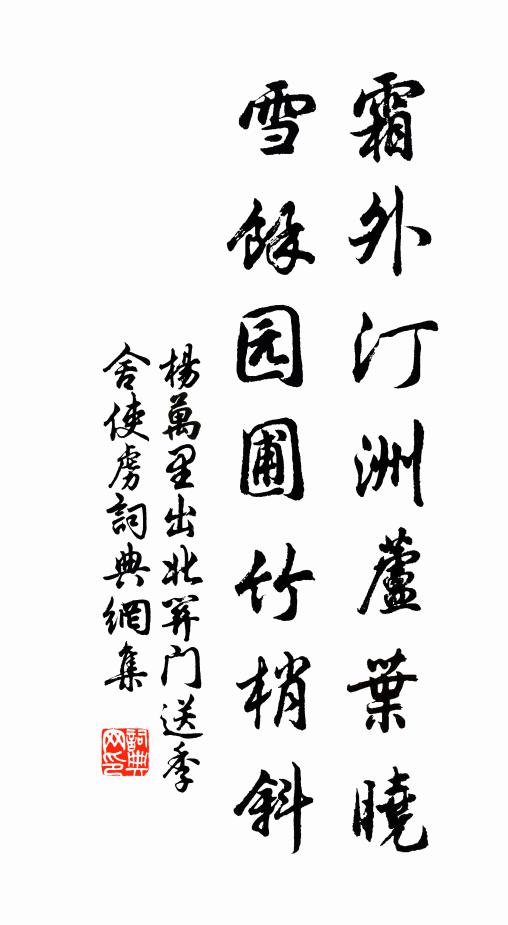 霜外汀洲蘆葉曉
雪餘园圃竹梢斜
楊萬里出北關门送季
舍使虜詞典網集
詞典
网印